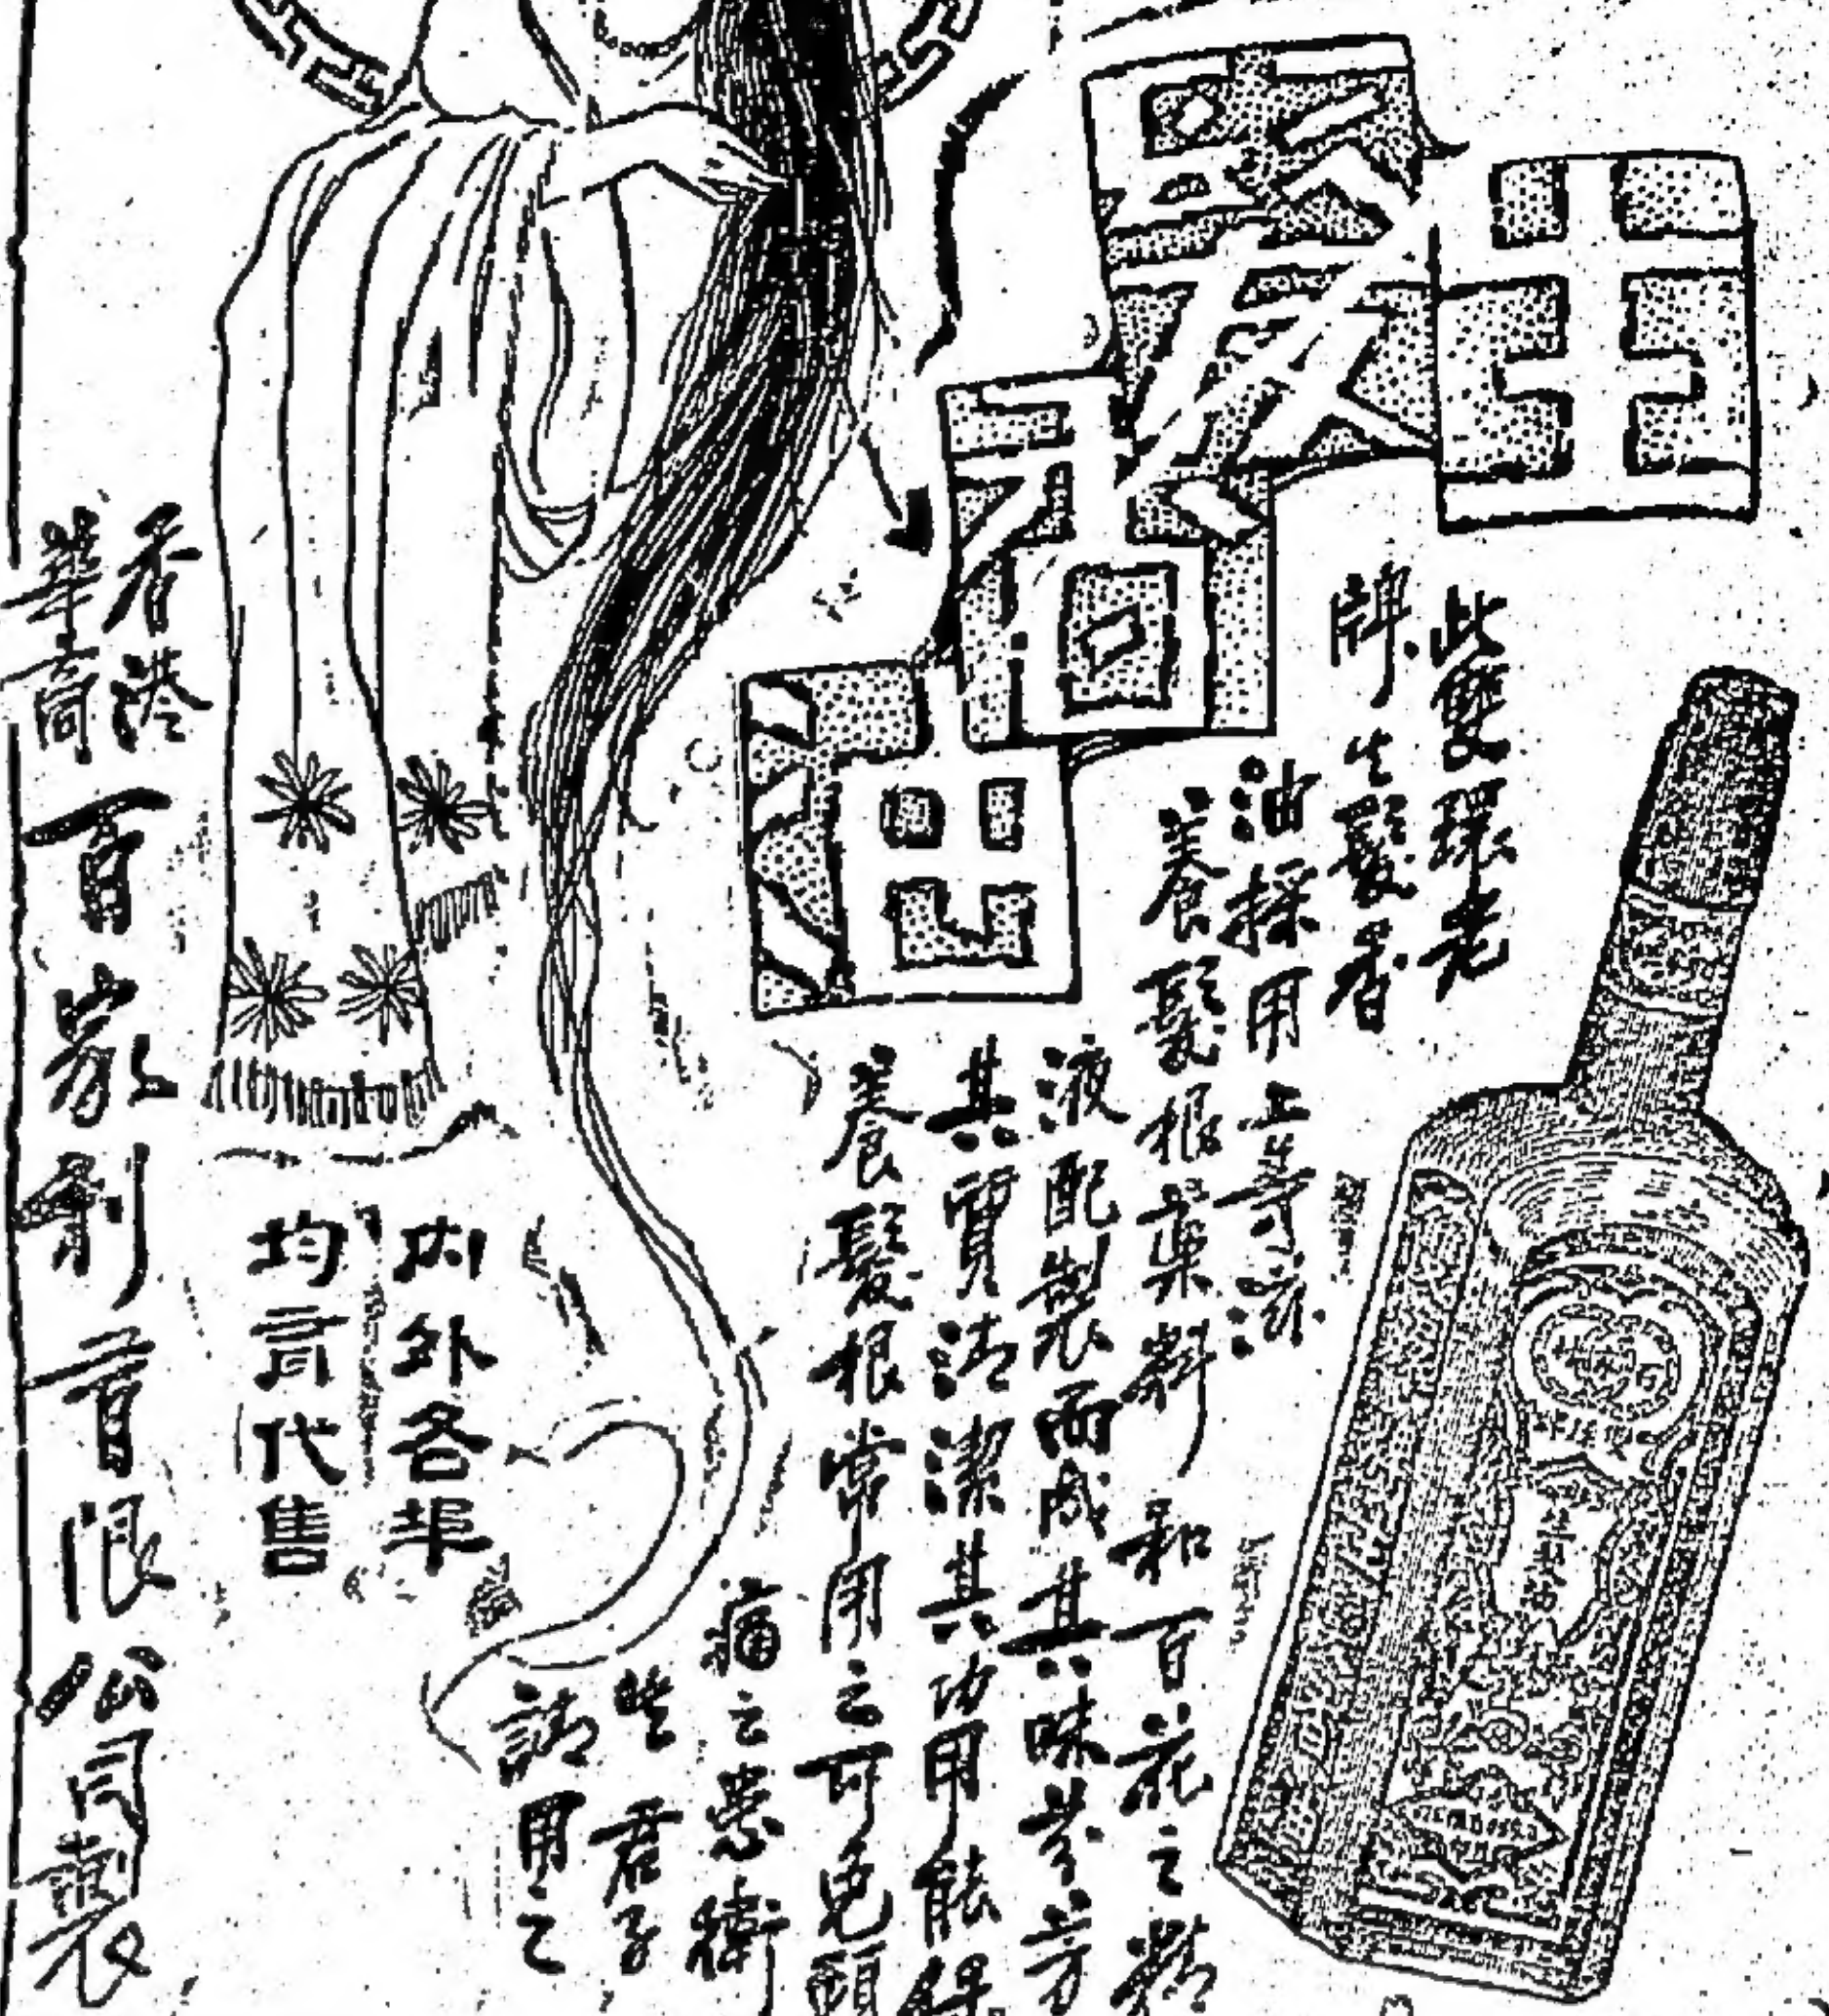 生髮香油
此雙環老
牌生髮香
油採用上等滋
養髮根藥料和百花之精
液配製而成其味芬芳
其質清潔其功用能
養髮根常用之可免頭
痛之患衛
生君子
請用之
內外各埠
均有代售
香港
華商
百家利有限公司製